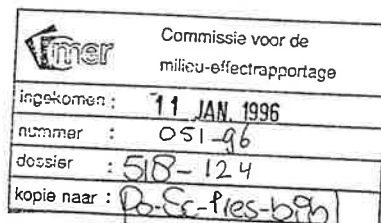 mer
Commissie voor de
milieu-effectrapportage
ingekomen : 11 JAN. 1996
nummer : 051-96
dossier : 518-124
kopie naar :